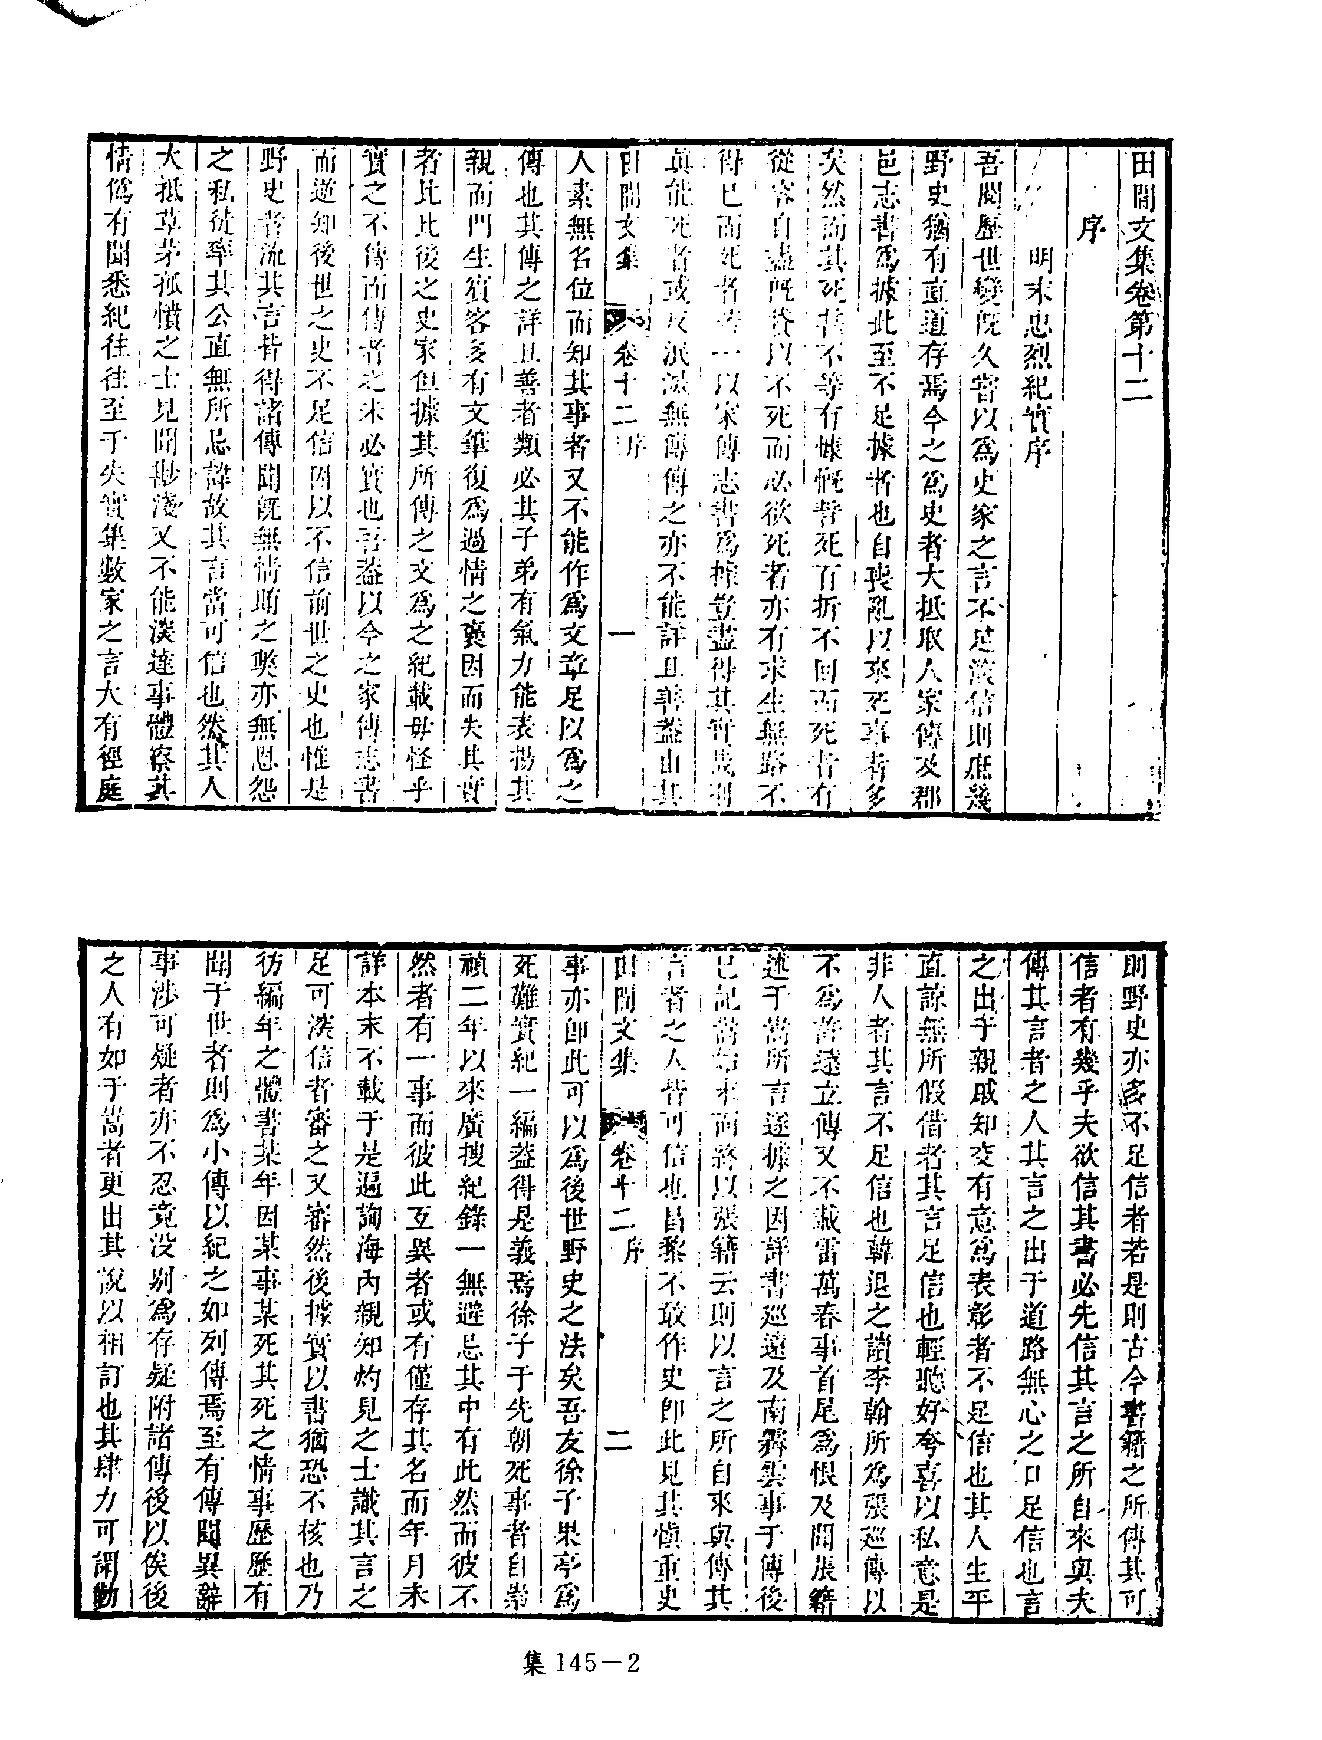 田間文集卷第十二
序
明末忠烈紀實序
吾閱歷世變既久竊以為史家之言不足深信則庶幾
野史猶有直道存焉今之為史者大抵取人家傳及郡
邑志書為據此至不足據者也自喪亂以來死事者多
矣然而其死甚不等有慷慨誓死百折不回而死者有
從容自盡既貸以不死而必欲死者亦有求生無路不
得已而死者若一以家傳志書為據豈盡得其實哉則
真能死者或反泯沒無傳傳之亦不能詳且善蓋由其
田間文集 卷十二 序 一
人素無名位而知其事者又不能作為文章足以為之
傳也其傳之詳且善者類必其子弟有氣力能表揚其
親而門生賓客多有文筆復為過情之襃因而失其實
者比比後之史家但據其所傳之文為之紀載毋怪乎
實之不傳而傳者之未必實也吾蓋以今之家傳志書
而逆知後世之史不足信因以不信前世之史也惟是
野史者流其言皆得諸傳聞既無情賄之弊亦無恩怨
之私徒率其公直無所忌諱故其言當可信也然其人
大抵草茅孤憤之士見聞尠淺又不能深達事體察其
情偽有聞悉紀往往至于失實集數家之言大有徑庭
則野史亦多不足信者若是則古今書籍之所傳其可
信者有幾乎夫欲信其書必先信其言之所自來與夫
傳其言者之人其言之出于道路無心之口足信也言
之出乎親戚知交有意為表彰者不足信也其人生平
直諒無所假借者其言足信也輕聽好夸喜以私意是
非人者其言不足信也韓退之讀李翰所為張巡傳以
不為許遠立傳又不載雷萬春事首尾為恨及聞張籍
述于嵩所言遂據之因詳書巡遠及南霽雲事于傳後
已記嵩始末而終以張籍云則以言之所自來與傳其
言者之人皆可信也昌黎不敢作史即此見其慎重史
田間文集 卷十二 序 二
事亦即此可以為後世野史之法矣吾友徐子果亭為
死難實紀一編蓋得是義焉徐子于先朝死事者自崇
禎二年以來廣搜紀錄一無避忌其中有此然而彼不
然者有一事而彼此互異者或有僅存其名而年月未
詳本末不載于是遍詢海內親知灼見之士識其言之
足可深信者審之又審然後據實以書猶恐不核也乃
彷編年之體書某年因某事某死其死之情事歷歷有
聞于世者則為小傳以紀之如列傳焉至有傳聞異辭
事涉可疑者亦不忍竟沒別為存疑附諸傳後以俟後
之人有如于嵩者更出其說以相訂也其肆力可謂勤
集 145－2